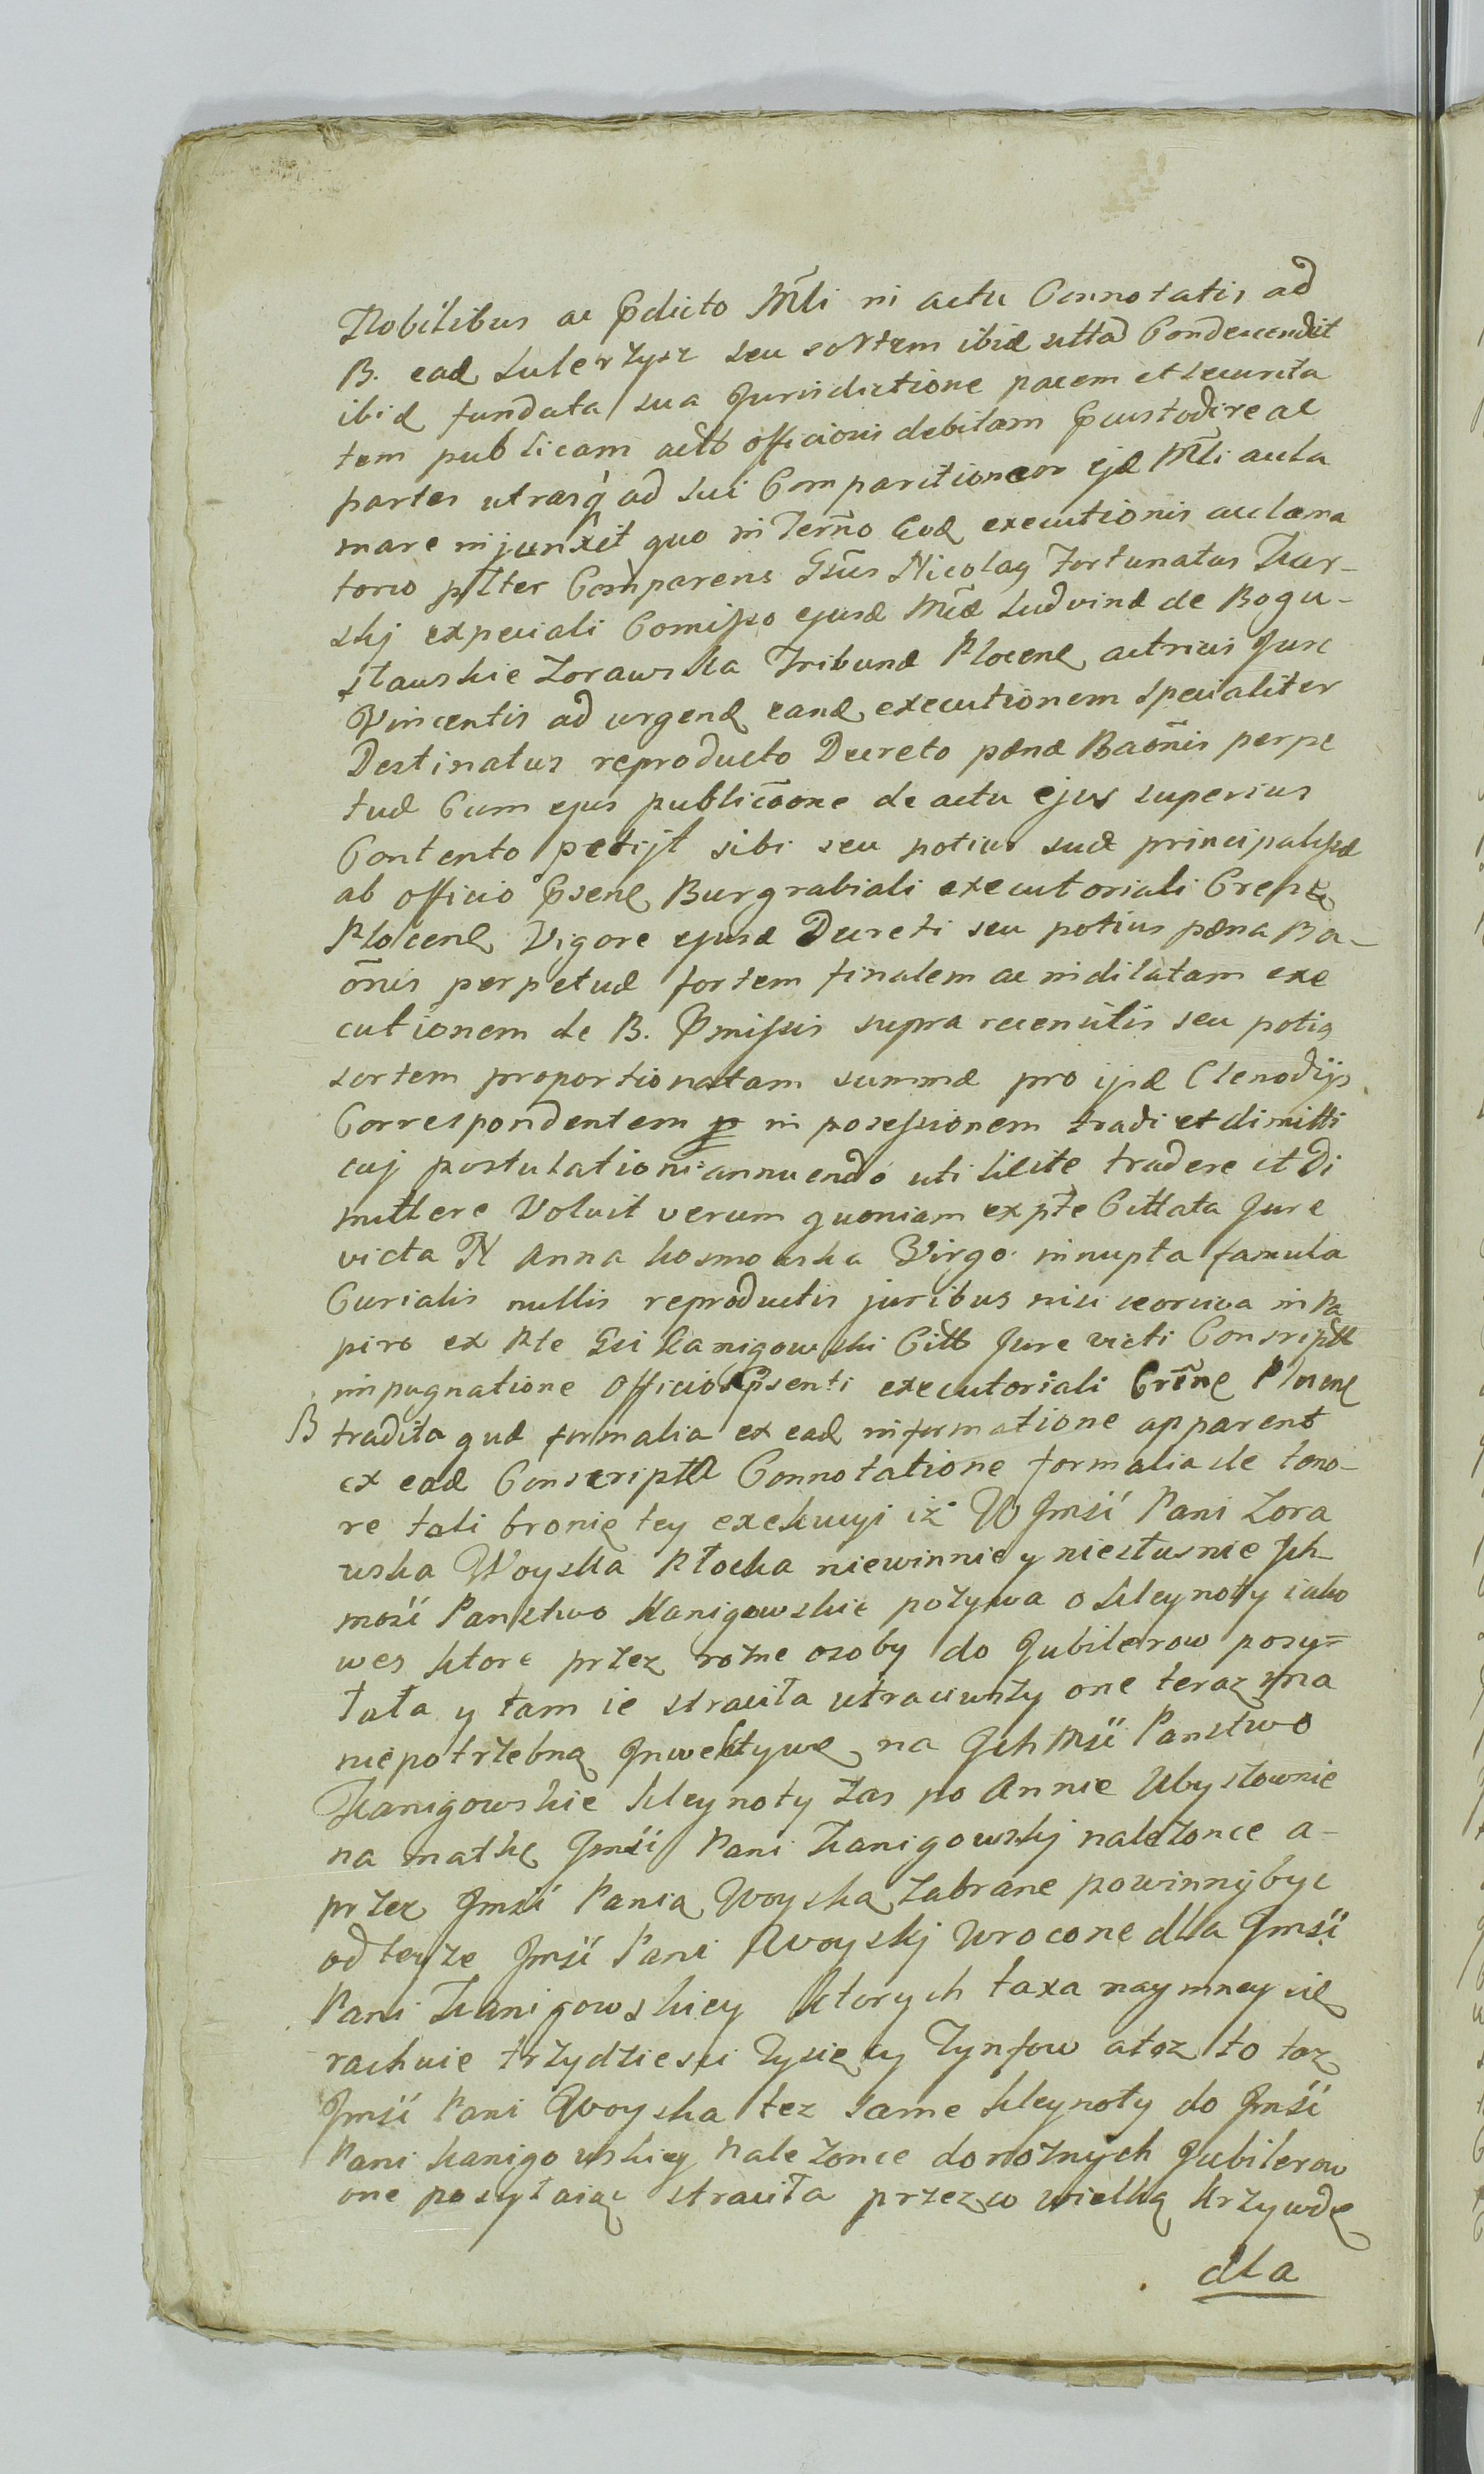 Nobilibus ac Pdicto Mli ni actu Connotatis ad
B. ead Sulerzysz seu sortem ibid sittad Condescendit
ibid fundata sua Jurisdictione pacem et securita
tem publicam actb officiosis debitam Pcustodire ac
partes utrasq ad sui Comparitionem ejd Mli acla
mare injunxit quo in Termo Eod executionis aclama
torio psltter Comparens Gsus Nicolaq Fortunatus Kar-
skj expeciali Comisso ejusd Mcd Ludvind de Bogu-
sławskie Zorawska Tribund Plocenę actricis Jure
Vincentis ad urgend eand executionem specialiter
Destinatus reproducto Decreto pænæ Baõnis perpe
tuæ Cum ejus publicõone de actu ejus superius
Contento petijt sibi seu potius suæ principalisæ
ab officio Psenę Burgrabiali executoriali Crepę
Plocenę Vigore ejusd Decreti seu potius pæna Ba-
õnis perpetuæ fortem finalem ac indilatam exe
cutionem de B. Pmissis supra recensitis seu potiq
sortem proportionatam summæ pro ijsd Clenodijs
Correspondentem in posessionem tradi et dimitti
cuj postulationi annuendo uti licite tradere et Di
mittere Voluit verum quoniam ex pte Cittata Jure
victa N Anna Kosmowska Virgo innupta famula
Curialis nullis reproductis juribus nisi seorsiva in Pa
piro ex Pte Gsi Kanigowski Cittb Jure victi Conscriptt
impugnatione Officio Psenti executoriali Crēnę Plocenę
B tradita quæ formalia ex ead informatione apparent
ex ead Conscripta Connotatione formalia de teno-
re tali bronię tey exekucyi iż W Jmśi Pani Zora
wska Woyska Płocka niewinnie y niesłusnie Jch
mośi Panstwo Kanigowskie pozywa o kleynoty iako
wes ktore przez rozne osoby do Jubilerow posy=
łała y tam ie straciła utraciwszy one teraz ma
niepotrzebną Jnwektywę na Jch Mśi Panstwo
Kanigowskie kleynoty zas po Annie Ubysłownie
na matkę Jmśi Pani Kanigowskj nalezonce a-
przez Jmśi Panią Woyską zabrane powinny byc
od teyze Jmśi Pani Woyskj wrocone dla Jmśi
Pani Kanigowskiey ktorych taxa naymney się
rachuie trzydziesci Tysięcy Tynfow atoz to toz
Jmśi Pani Woyska tez same kleynoty do Jmśi
Pani Kanigowskiey nalezonce do roznych Jubilerow
one posyłaiąc straciła przezco wielką krzywdę
dla